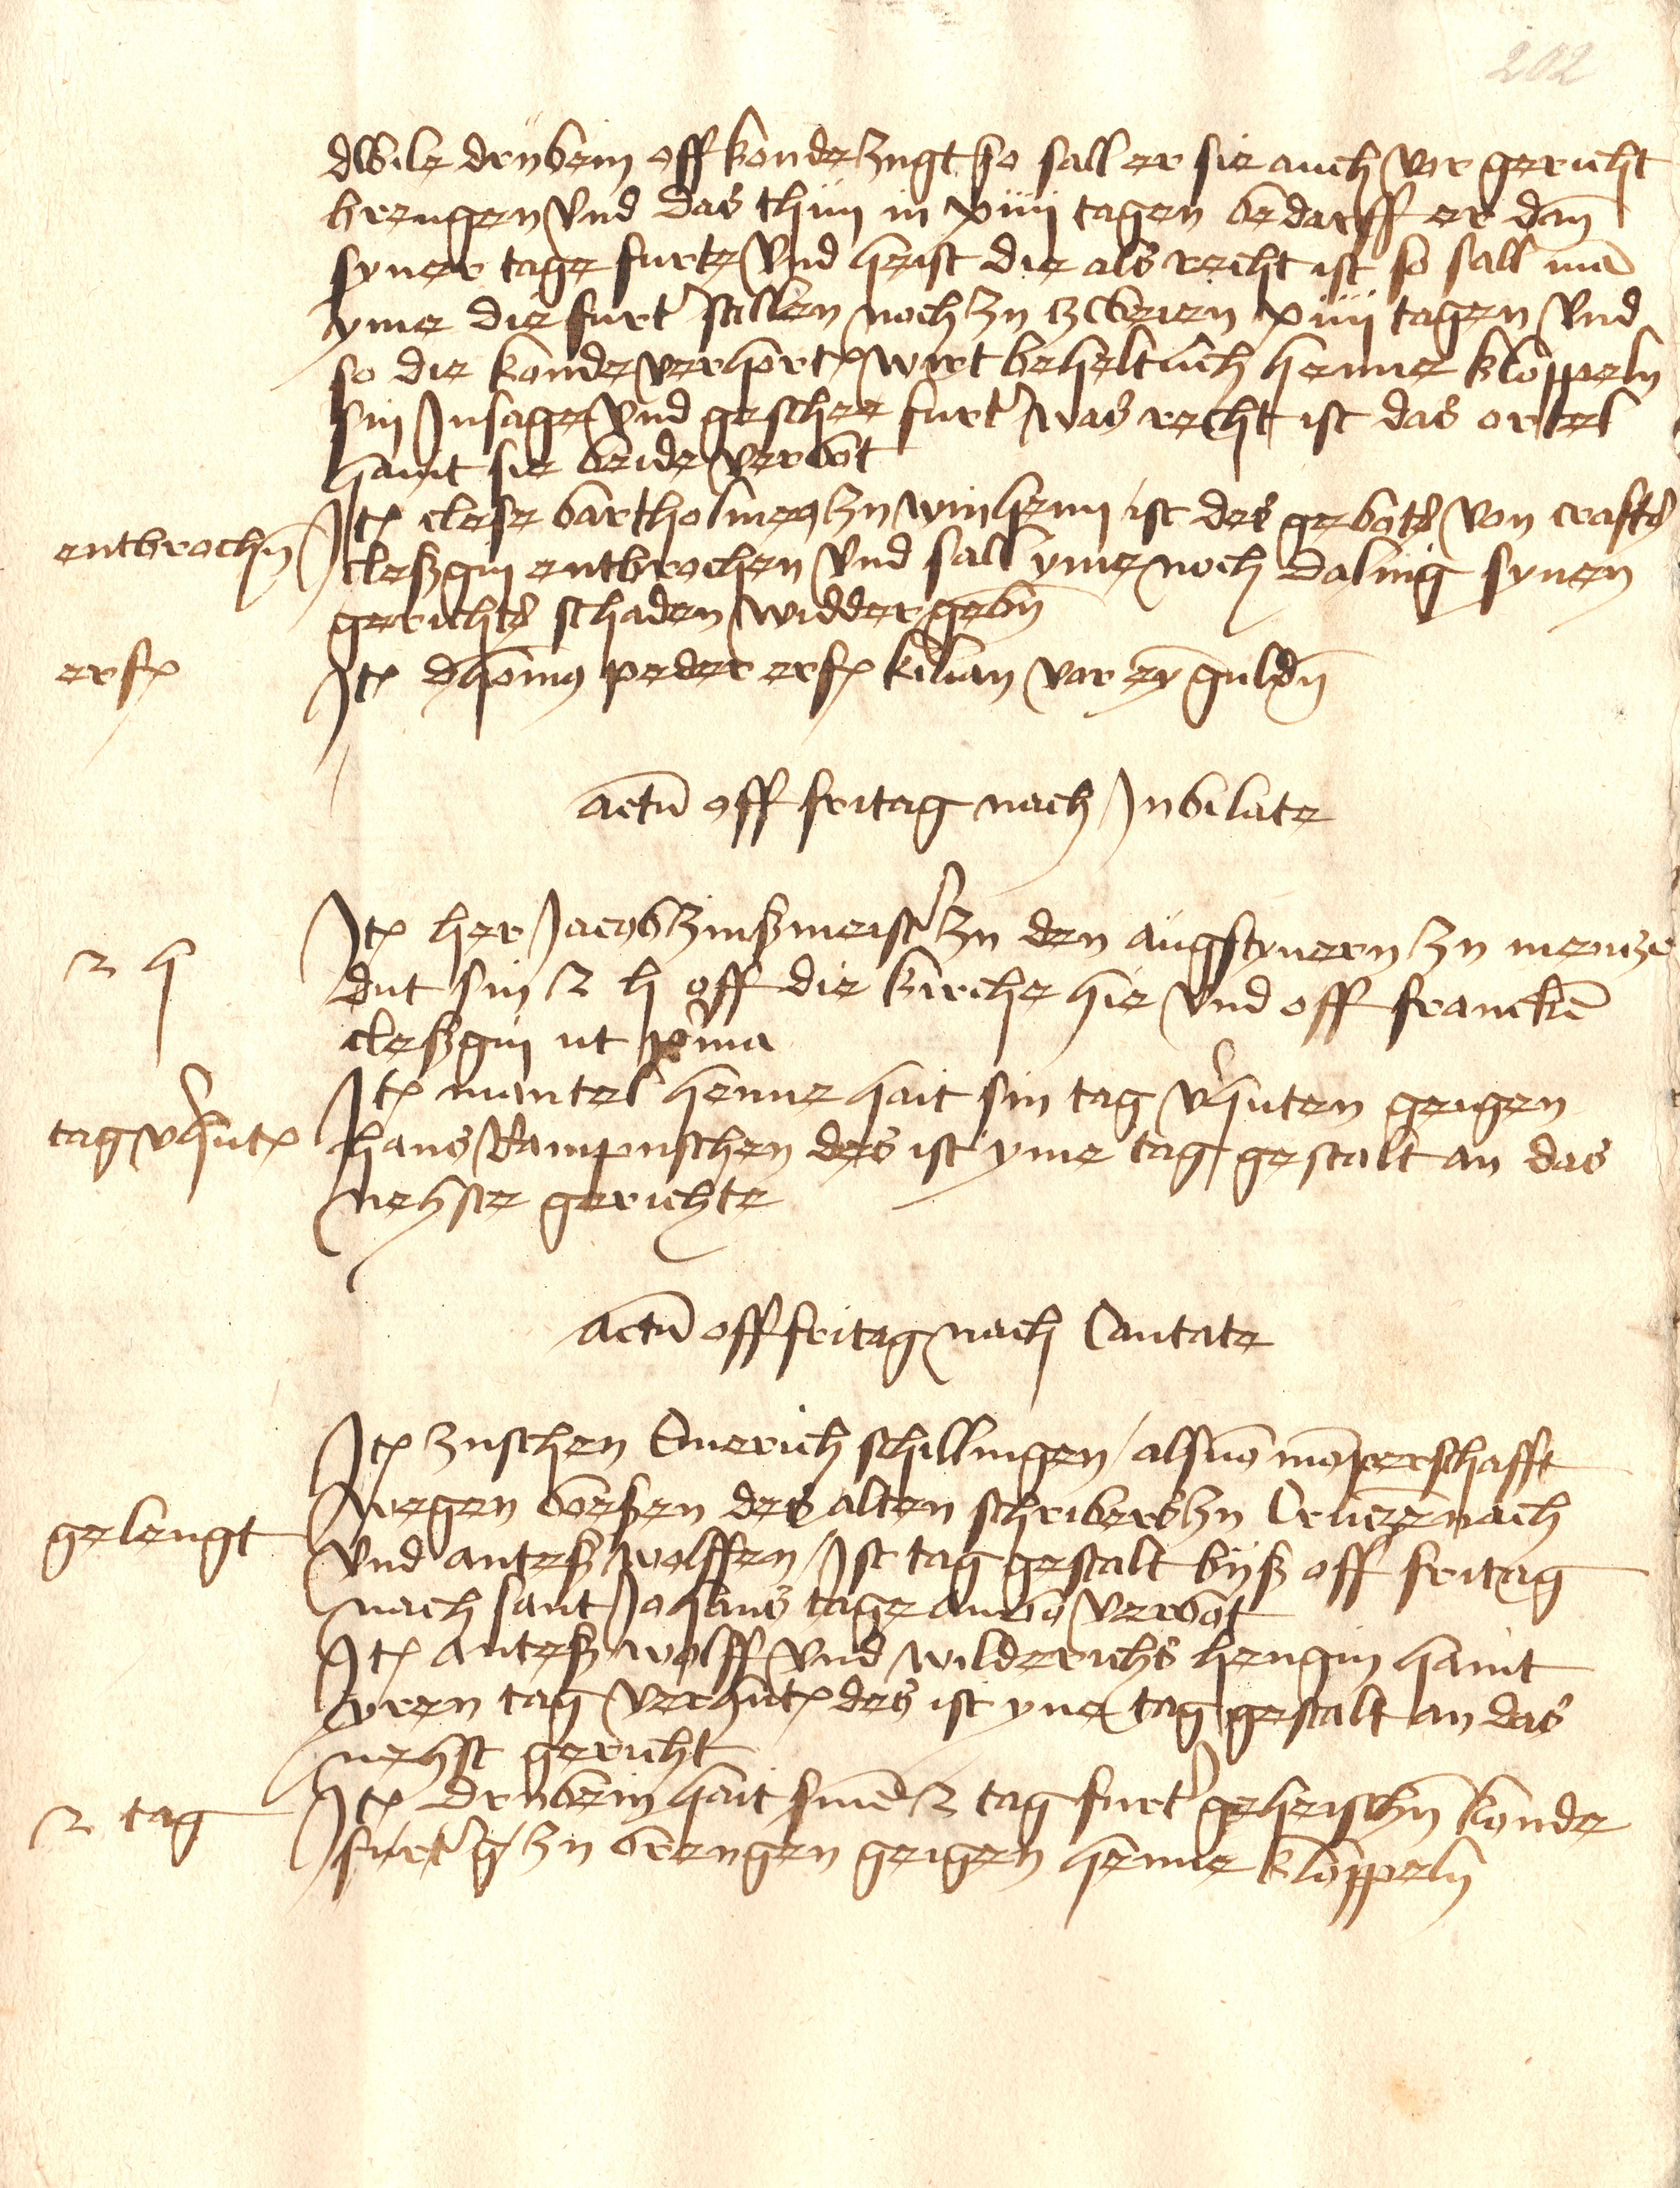 202
dwile drubein off konde zugt so sall er sie auch vor gericht
brengen vnd das thun in xiiii tagen bedarff er dan
syner tage furte vnd heist die als recht ist so sall ma
yme die furt stellen noch zu zweien xiiii tagen vnd
so die konde verhort wirt beheltlich henne kloppeln
sin Insage vnd geschee furt was recht ist das ortel
haint sie beide verbot
entbrochn
Jt clese bartholmeꝰ zu winheim ist des gebots von crafts
cleßgin entbrochen vnd sall yme noch daling synen
gerichts schaden widder gebn
erf
Jt dhoniꝰ peder erf kilian vor ey guldn
actu off fritag nach Jubilate
2 h
Jt her Jacob zinßmeist zu den augstynern zu mentze
dut sin 2 h off die kirche hie vnd off francken
cleßgin ut pma
Jt mantel henne hait sin tag vhuten geigen
tag vhut
hans Rampuschen des ist yme tag gestalt an das
nehste gerichte
actu off fritag nach Cantate
Jt zuschen Emerich schillingen als uo moperschafft
wegen beßen des alten schribers zu Cruczenach
gelengt
vnd anteß wolffen Jst tag gestalt byß off fritag
nach sant Johans tage ambo verbot
Jt anteß wolff vnd wilderichs hengin haint
yren tag verhut des ist yne tag gestalt an das
nehst gericht
2 tag
Jt drubein hait sine 2 tag furt geheischn konde
furt zu brengen geigen henne kloppeln